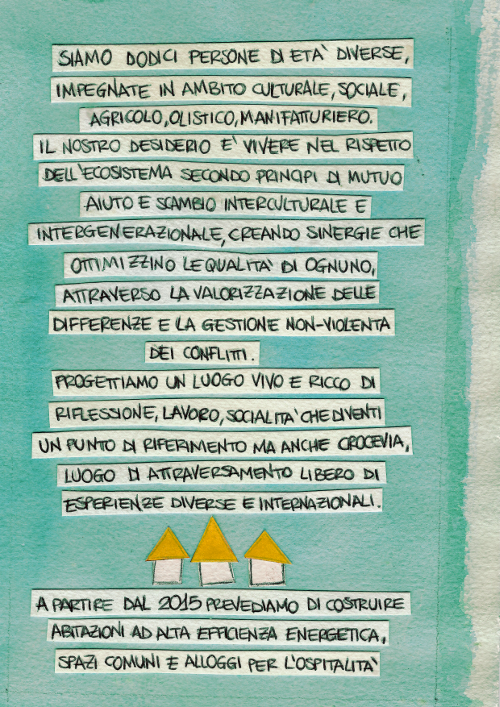 SIAMO DODICI PERSONE DI ETA' DIVERSE,
IMPEGNATE IN AMBITO CULTURALE, SOCIALE,
AGRICOLO, OLISTICO, MANIFATTURIERO.
IL NOSTRO DESIDERIO E' VIVERE NEL RISPETTO
DELL'ECOSISTEMA SECONDO PRINCIPI DI MUTUO
AIUTO E SCAMBIO INTERCULTURALE E
INTERGENERAZIONALE, CREANDO SINERGIE CHE
OTTIMIZZINO LE QUALITA' DI OGNUNO,
ATTRAVERSO LA VALORIZZAZIONE DELLE
DIFFERENZE E LA GESTIONE NON-VIOLENTA
DEI CONFLITTI.
PROGETTIAMO UN LUOGO VIVO E RICCO DI
RIFLESSIONE, LAVORO, SOCIALITA' CHE DIVENTI
UN PUNTO DI RIFERIMENTO MA ANCHE CROCEVIA,
LUOGO DI ATTRAVERSAMENTO LIBERO DI
ESPERIENZE DIVERSE E INTERNAZIONALI.
A PARTIRE DAL 2015 PREVEDIAMO DI COSTRUIRE
ABITAZIONI AD ALTA EFFICIENZA ENERGETICA,
SPAZI COMUNI E ALLOGGI PER L'OSPITALITA'